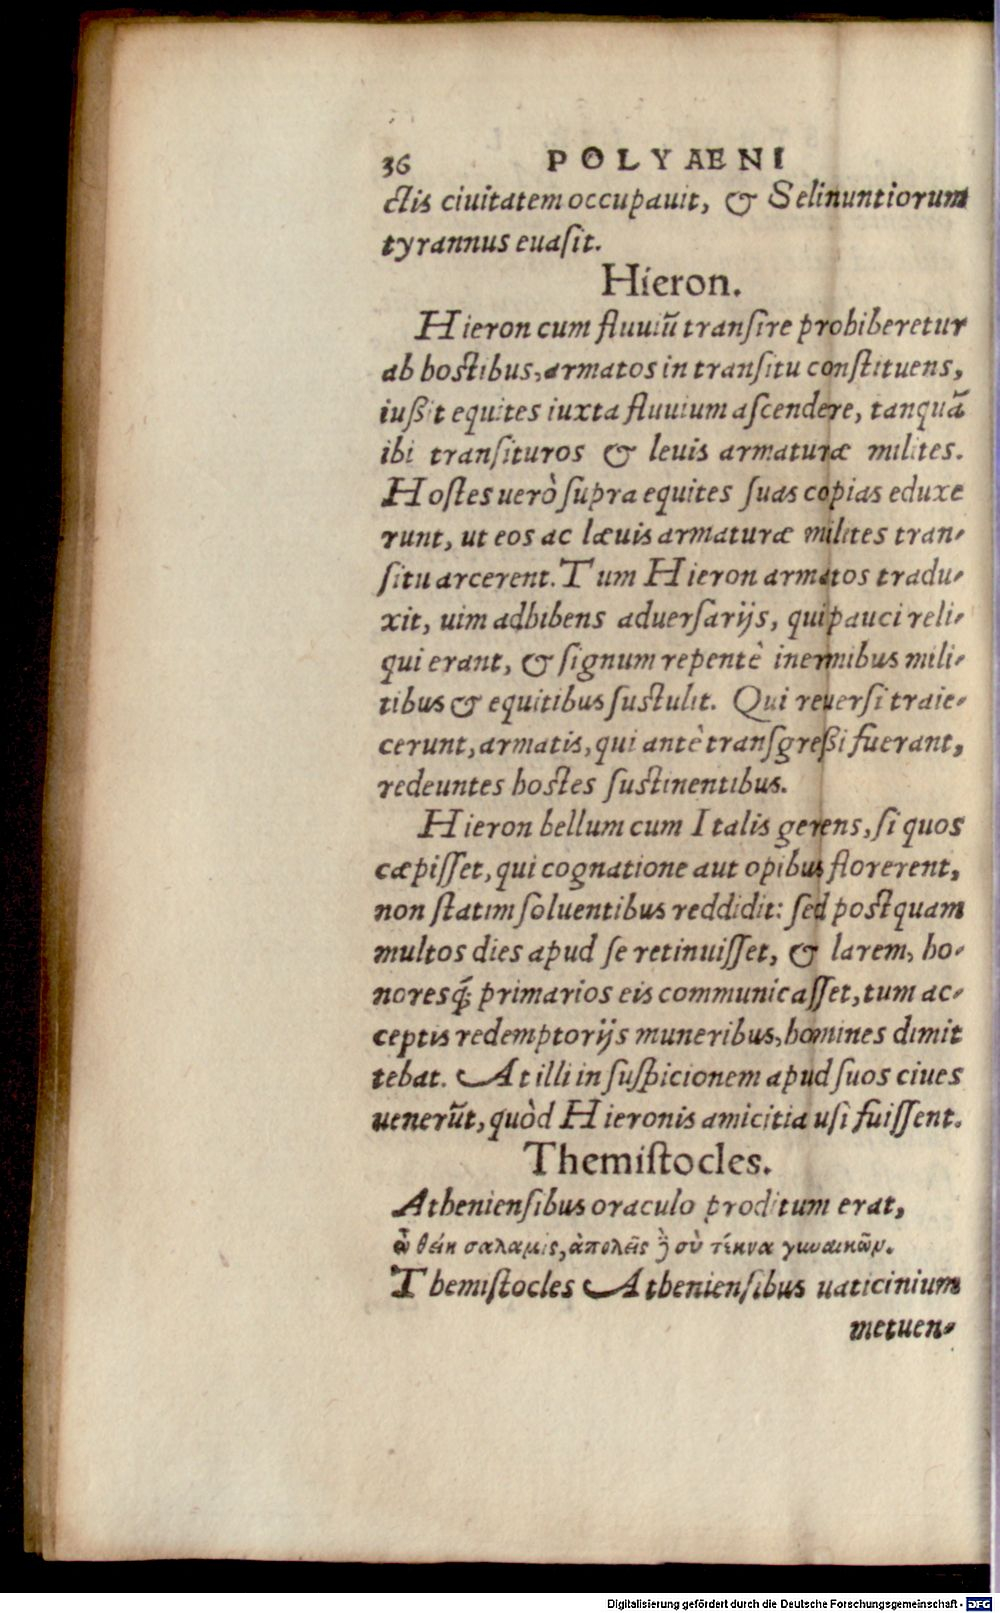 36 POLYAENI
ctis ciuitatem occupauit, & Selinuntiorum
tyrannus euaſit.
Hieron.
Hieron cum fluuiũ tranſire prohiberetur
ab hoſtibus, armatos in tranſitu conſtituens,
iußit equites iuxta fluuium aſcendere, tanquã
ibi tranſituros & leuis armaturæ milites.
Hoſtes uerò ſupra equites ſuas copias eduxe
runt, ut eos ac læuis armaturæ milites tran-
ſitu arcerent. Tum Hieron armatos tradu-
xit, uim adhibens aduerſarijs, qui pauci reli-
qui erant, & ſignum repentè inermibus mili-
tibus & equitibus ſuſtulit. Qui reuerſi traie-
cerunt, armatis, qui antè tranſgreßi fuerant,
redeuntes hoſtes ſuſtinentibus.
Hieron bellum cum Italis gerens, ſi quos
cæpiſſet, qui cognatione aut opibus florerent,
non ſtatim ſoluentibus reddidit: ſed poſtquam
multos dies apud ſe retinuiſſet, & larem, ho-
noresq́; primarios eis communicaſſet, tum ac-
ceptis redemptorijs muneribus, homines dimit
tebat. At illi in ſuſpicionem apud ſuos ciues
uenerũt, quòd Hieronis amicitia uſi fuiſſent.
Themiſtocles.
Athenienſibus oraculo proditum erat,
ὦ θείη σαλαμὶς, ἀπολεῖς ἢ σὺ τέκνα γυναικῶν.
Themiſtocles Athenienſibus uaticinium
metuen-
Digitalisierung gefördert durch die Deutsche Forschungsgemeinschaft - DFG